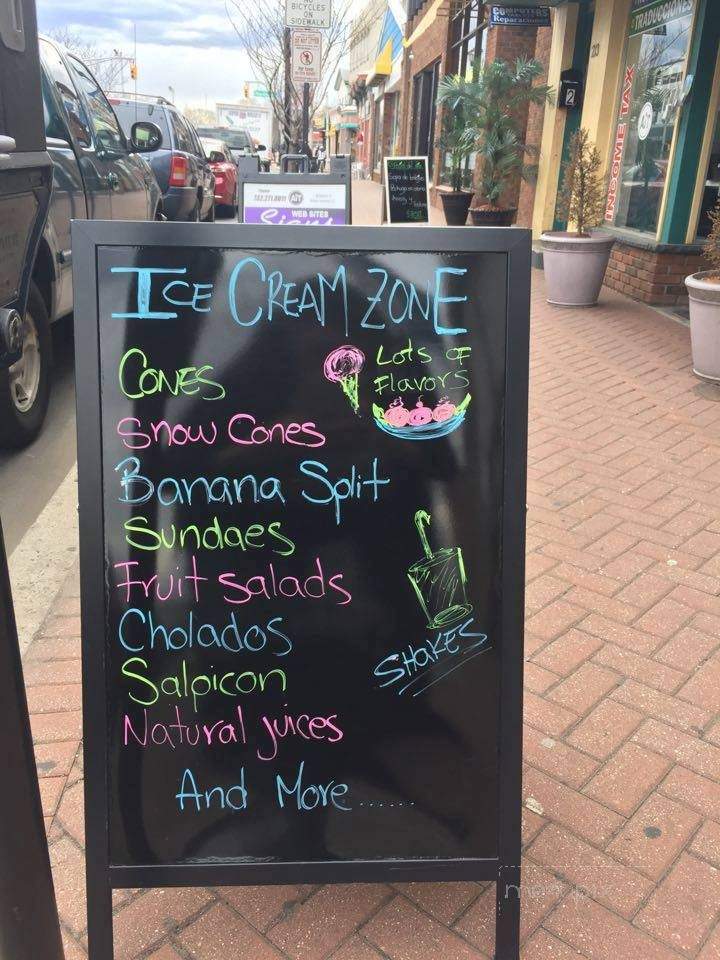 BICYCLES
ON
SIDEWALK
COMPUTERS
Reparacion
TRADUCCIONES
INCOME TAX
2
WEB SITES
Signs
ICE CREAM ZONE
CONES
LOTS OF
FlavorS
Snow Cones
Banana Split
Sundaes
Fruit salads
Cholados
SHAKES
Salpicon
Natural juices
And More......